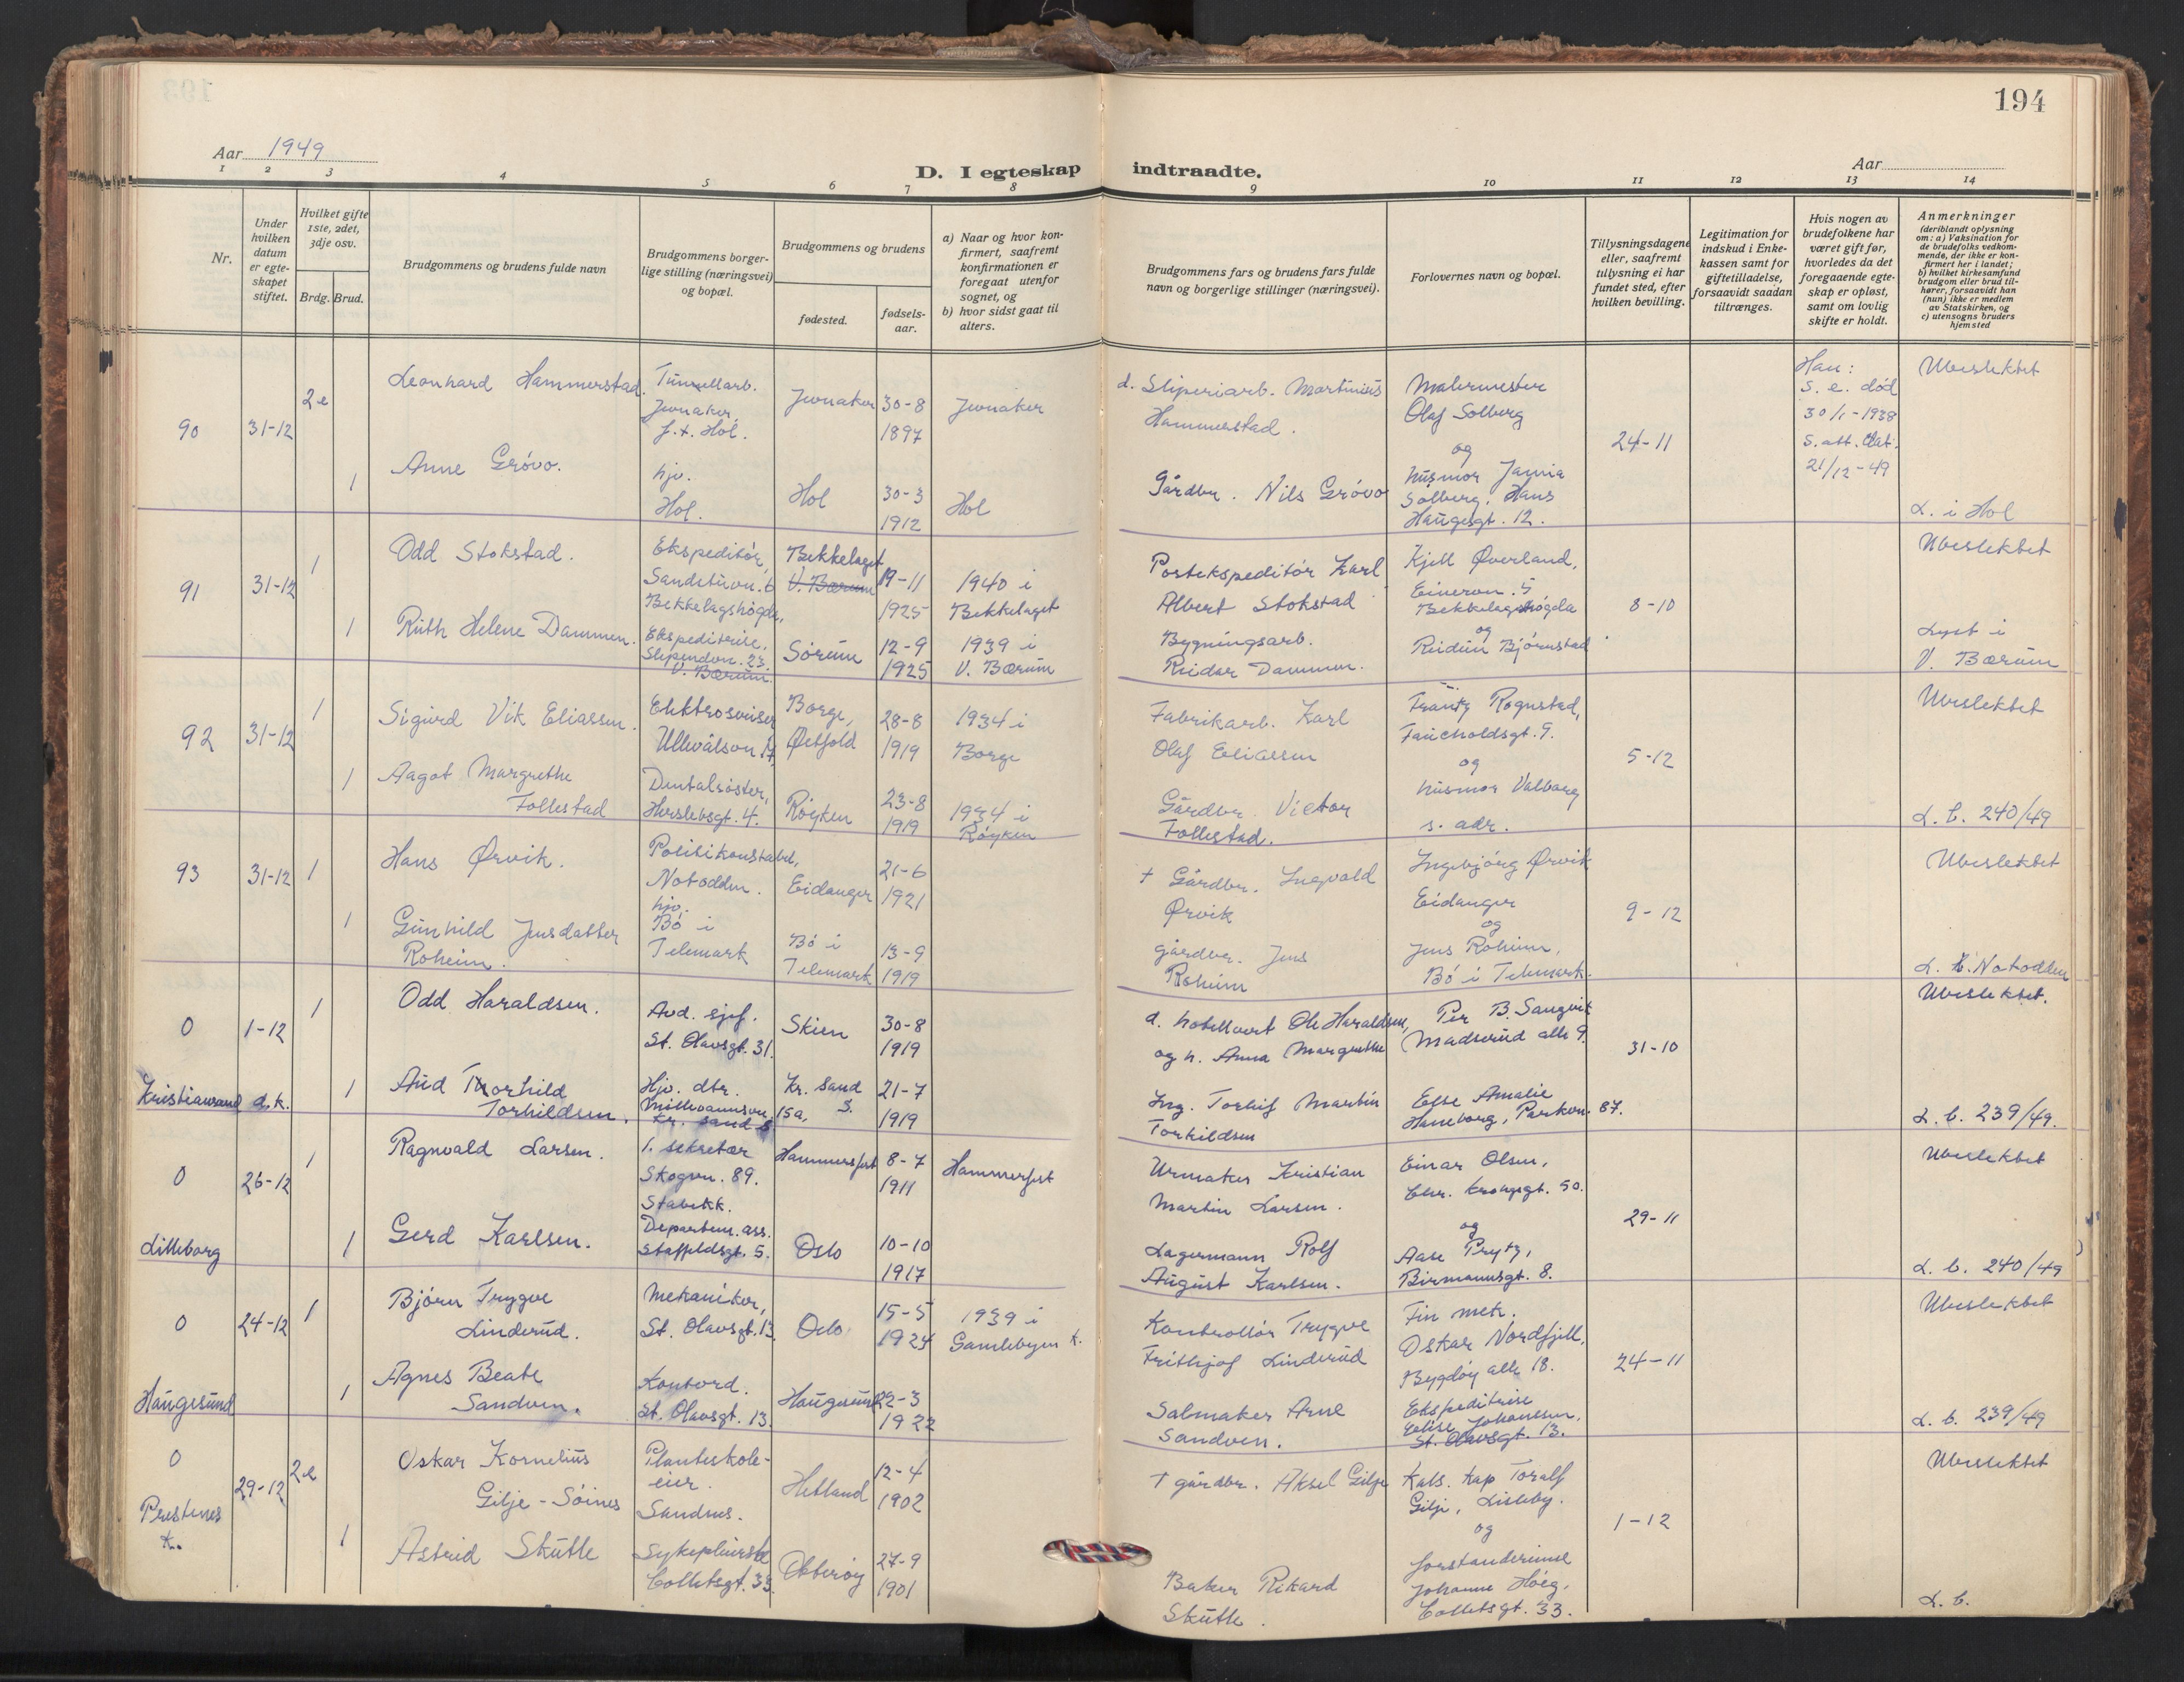 194
Aar 1949
D. I egteskap indtraadte.
Aar
1 2 3 4 5 6 7 8 9 10 11 12 13 14
Nr.
Under hvilken datum er egteskapet stiftet.
Hvilket gifte 1ste, 2det, 3dje osv.
Brdg. Brud.
Brudgommens og brudens fulde navn
Brudgommens borgerlige stilling (næringsvei) og bopæl.
Brudgommens og brudens
fødested.
fødselsaar.
a) Naar og hvor konfirmert, saafremt konfirmationen er foregaat utenfor sognet, og
b) hvor sidst gaat til alters.
Brudgommens fars og brudens fars fulde navn og borgerlige stillinger (næringsvei).
Forlovernes navn og bopæl.
Tillysningsdagene eller, saafremt tillysning ei har fundet sted, efter hvilken bevilling.
Legitimation for indskud i Enkekassen samt for giftetilladelse, forsaavidt saadan tiltrænges.
Hvis nogen av brudefolkene har været gift før, hvorledes da det foregaaende egteskap er opløst, samt om lovlig skifte er holdt.
Anmerkninger
(deriblandt oplysning om: a) Vaksination for de brudefolks vedkommende, der ikke er konfirmert her i landet;
b) hvilket kirkesamfund brudgom eller brud tilhører, forsaavidt han (hun) ikke er medlem av Statskirken, og
c) utensogns bruders hjemsted
90 31-12 2e
Leonhard Hammerstad.
Tunnellarb.
Jevnaker,
f.t. Hol.
Jevnaker 30-8
1897
Jevnaker
d. Sliperiarb. Martinius
Hammerstad.
Malermester
Olaf Solberg
og
24-11
Han:
s. e. død
30/1-1938
s. att. dat.
21/12-49
Ubeslektet
1
Anne Grøvo.
hjv.
Hol.
Hol 30-3
1912
Hol
Gårdbr. Nils Grøvo
husmor
Solberg, Hans
Haugesgt. 12.
L. i Hol
91 31-12 1
Odd Stokstad.
Ekspeditør,
Sandstuvn. 6
Bekkelagshøgda,
Bekkelaget
V. Bærum
19-11
1925
1940 i
Bekkelaget
Postekspeditør Karl
Albert Stokstad
Kjell Øverland,
Einervn. 5
Bekkelagshøgda
og
8-10
Ubeslektet
1
Ruth Helene Dammen.
Ekspeditrise,
Slependvn. 23.
V. Bærum.
Sørum
12-9
1925
1939 i
V. Bærum
Bygningsarb.
Reidar Dammen.
Reidun Bjørnstad
Lyst i
V. Bærum
92 31-12 1
Sigurd Vik Eliassen.
Elektrosveiser
Ullevålsvn. 17,
Borge,
Østfold
28-8
1919
1934 i
Borge
Fabrikarb. Karl
Olaf Eliassen
Frantz Rognstad,
Faucholdsgt. 9.
og
5-12
Ubeslektet
1
Aagot Margrethe
Follestad
Dentalsøster,
Herslebsgt. 4.
Røyken
23-8
1919
1934 i
Røyken
Gårdbr. Victor
Follestad.
husmor Valborg
s. adr.
L. b. 240/49
93 31-12 1
Hans Ørvik.
Politikonstabel,
Notodden.
Eidanger
21-6
1921
+ Gårdbr. Ingvald
Ørvik
Ingebjørg Ørvik
Eidanger
og
9-12
Ubeslektet
1
Gunhild Jensdatter
Roheim.
hjv.
Bø i
Telemark
Bø i
Telemark
13-9
1919
gårdbr. Jens
Roheim
Jens Roheim,
Bø i Telemark.
L. b. Notodden
0 1-12 1
Odd Haraldsen.
Avd. sjef.
St. Olavsgt. 31.
Skien
30-8
1919
d. hotellvert Ole Haraldsen,
og h. Anna Margrethe
Per B. Sangvik
Madserud alle 9.
31-10
Ubeslektet.
Kristiansand d.k. 1
Aud Thorhild
Torkildsen.
Hjv. dtr.
15a,
Kr. sand S
Kr. Sand
S.
21-7
1919
Ing. Torleif Martin
Torkildsen
Else Amalie
Haneborg, Parkvn. 87.
L. b. 239/49.
0 26-12 1
Ragnvald Larsen.
1. sekretær
Skogvn. 89.
Stabekk.
Hammerfest
8-7
1911
Hammerfest
Urmaker Kristian
Martin Larsen.
Einar Olsen,
Chr. Krohgsgt. 50.
og
29-11
Ubeslektet
Lilleborg 1
Gerd Karlsen.
Departem. ass.
Staffeldsgt. 5.
Oslo
10-10
1917
Lagermann Rolf
August Karlsen.
Aase Prytz,
Birmannsgt. 8.
L. b. 240/49
0 24-12 1
Bjørn Trygve
Linderud.
Mekaniker,
St. Olavsgt. 13.
Oslo
15-5
1924
1939 i
Gamlebyen k.
Kontrollør Trygve
Frithjof Linderud
Fin mek.
Oskar Nordfjell,
Bygdøy alle 18.
24-11
Ubeslektet
Haugesund 1
Agnes Beate
Sandven.
Kontord.
St. Olavsgt. 13.
Haugesund
22-3
1922
Salmaker Arne
Sandven.
Ekspeditrise
Elise Johanssen,
St. Olavsgt. 13.
L. b. 239/49
0
Prestenes
k.
29-12 2e
Oskar Kornelius
Gilje-Søines
Planteskole-
eier.
Sandnes.
Hetland
12-4
1902
+ gårdbr. Aksel Gilje
Kals. kap Toralf
Gilje, Lisleby.
og
1-12
Ubeslektet
1
Astrid Skutle
Sykepleierske
Colletsgt. 33.
Osterøy
27-9
1901
Baker Rikard
Skutle.
forstanderinne
Johanne Høeg,
Colletsgt. 33.
L. b.